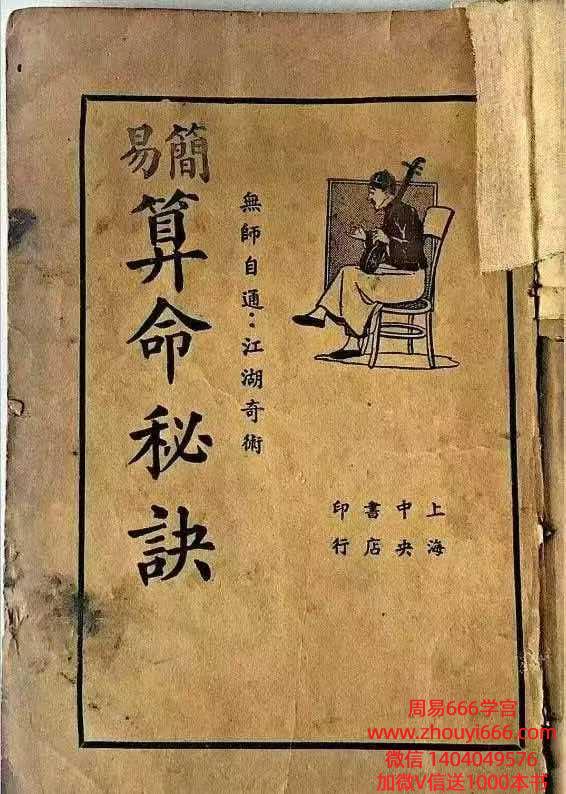 簡易
算命秘訣
無師自通：江湖奇術
上海
中央
書店
印行
周易666学宫
www.zhouyi666.com
微信 1404049576
加微V信送1000本书